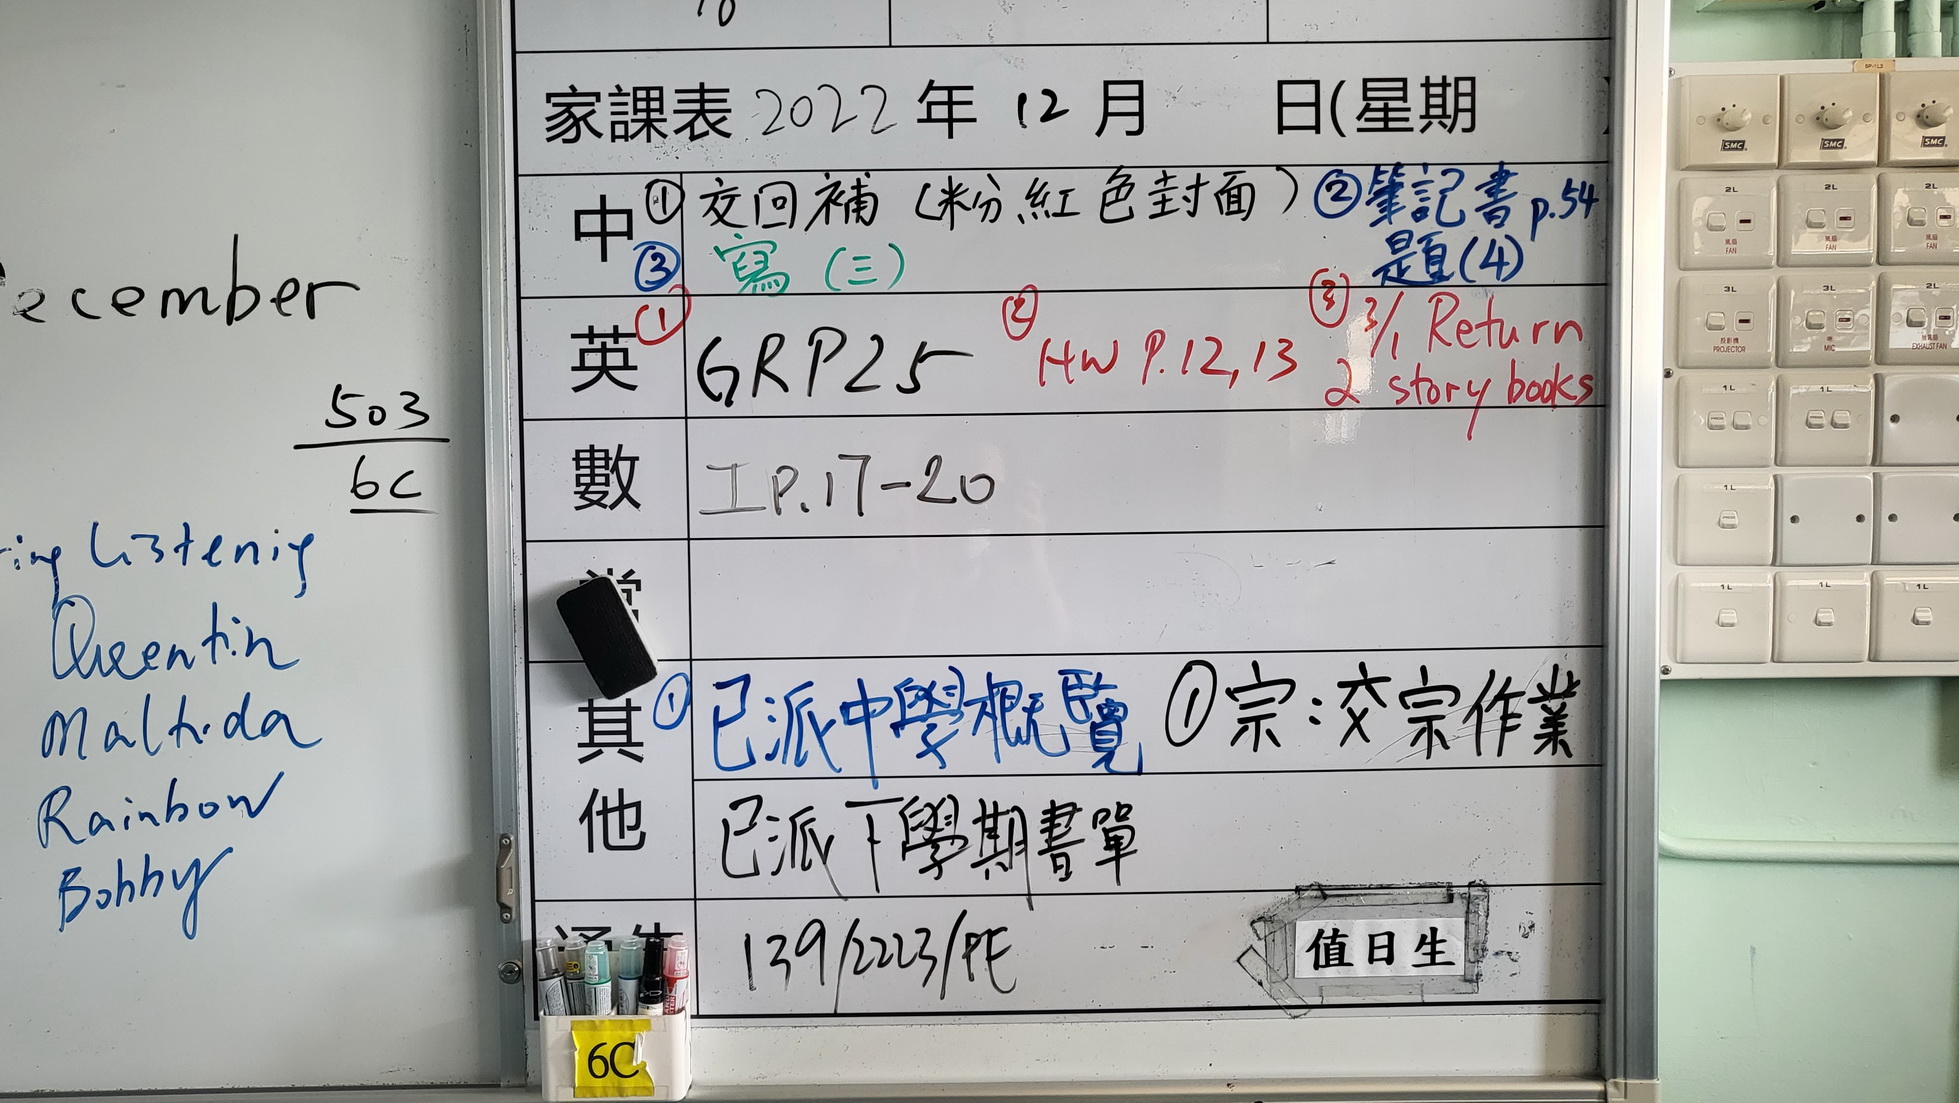 ecember
503
6C
Listenig
Queentin
Maltida
Rainbow
Bobby
家課表 2022 年 12 月 日(星期
中 ① 交回補（粉紅色封面） ② 筆記書 p.54
題(4)
③ 寫（三）
英 ① GRP25 ② HW P.12, 13 ③ 3/1 Return
2 story books
數 工 P.17-20
常
其他 ① 已派中學概覽 ① 宗：交宗作業
已派下學期書單
139/2223/PE
值日生
6C
SMC
SMC
SMC
2L
2L
2L
風扇
FAN
風扇
FAN
風扇
FAN
3L
3L
2L
投影機
PROJECTOR
MIC
EXHAUST FAN
1L
1L
1L
1L
1L
1L